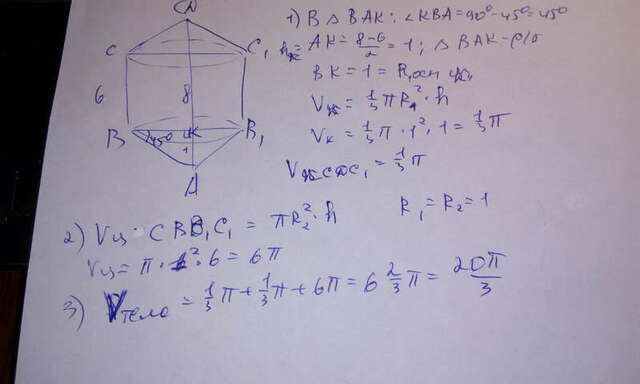 D
C C₁
6 8
B 45° K B₁
1
A
1) В △ BAK: ∠KBA = 90° - 45° = 45°
h = AK = 8-6/2 = 1; △ BAK - р/б
BK = 1 = R осн
Vк = 1/3 πR₁² · h
Vк = 1/3 π · 1² · 1 = 1/3 π
V CDC₁ = 1/3 π
2) Vц · CBB₁C₁ = πR₂² · h R₁ = R₂ = 1
Vц = π · 1² · 6 = 6π
3) Vтела = 1/3 π + 1/3 π + 6π = 6 2/3 π = 20π/3